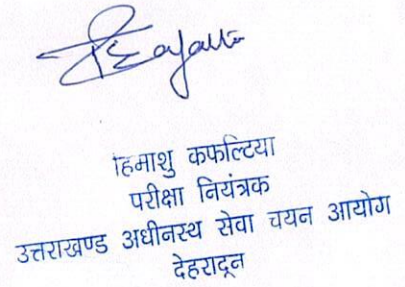 हिमाशु कफल्टिया
परीक्षा नियंत्रक
उत्तराखण्ड अधीनस्थ सेवा चयन आयोग
देहरादून